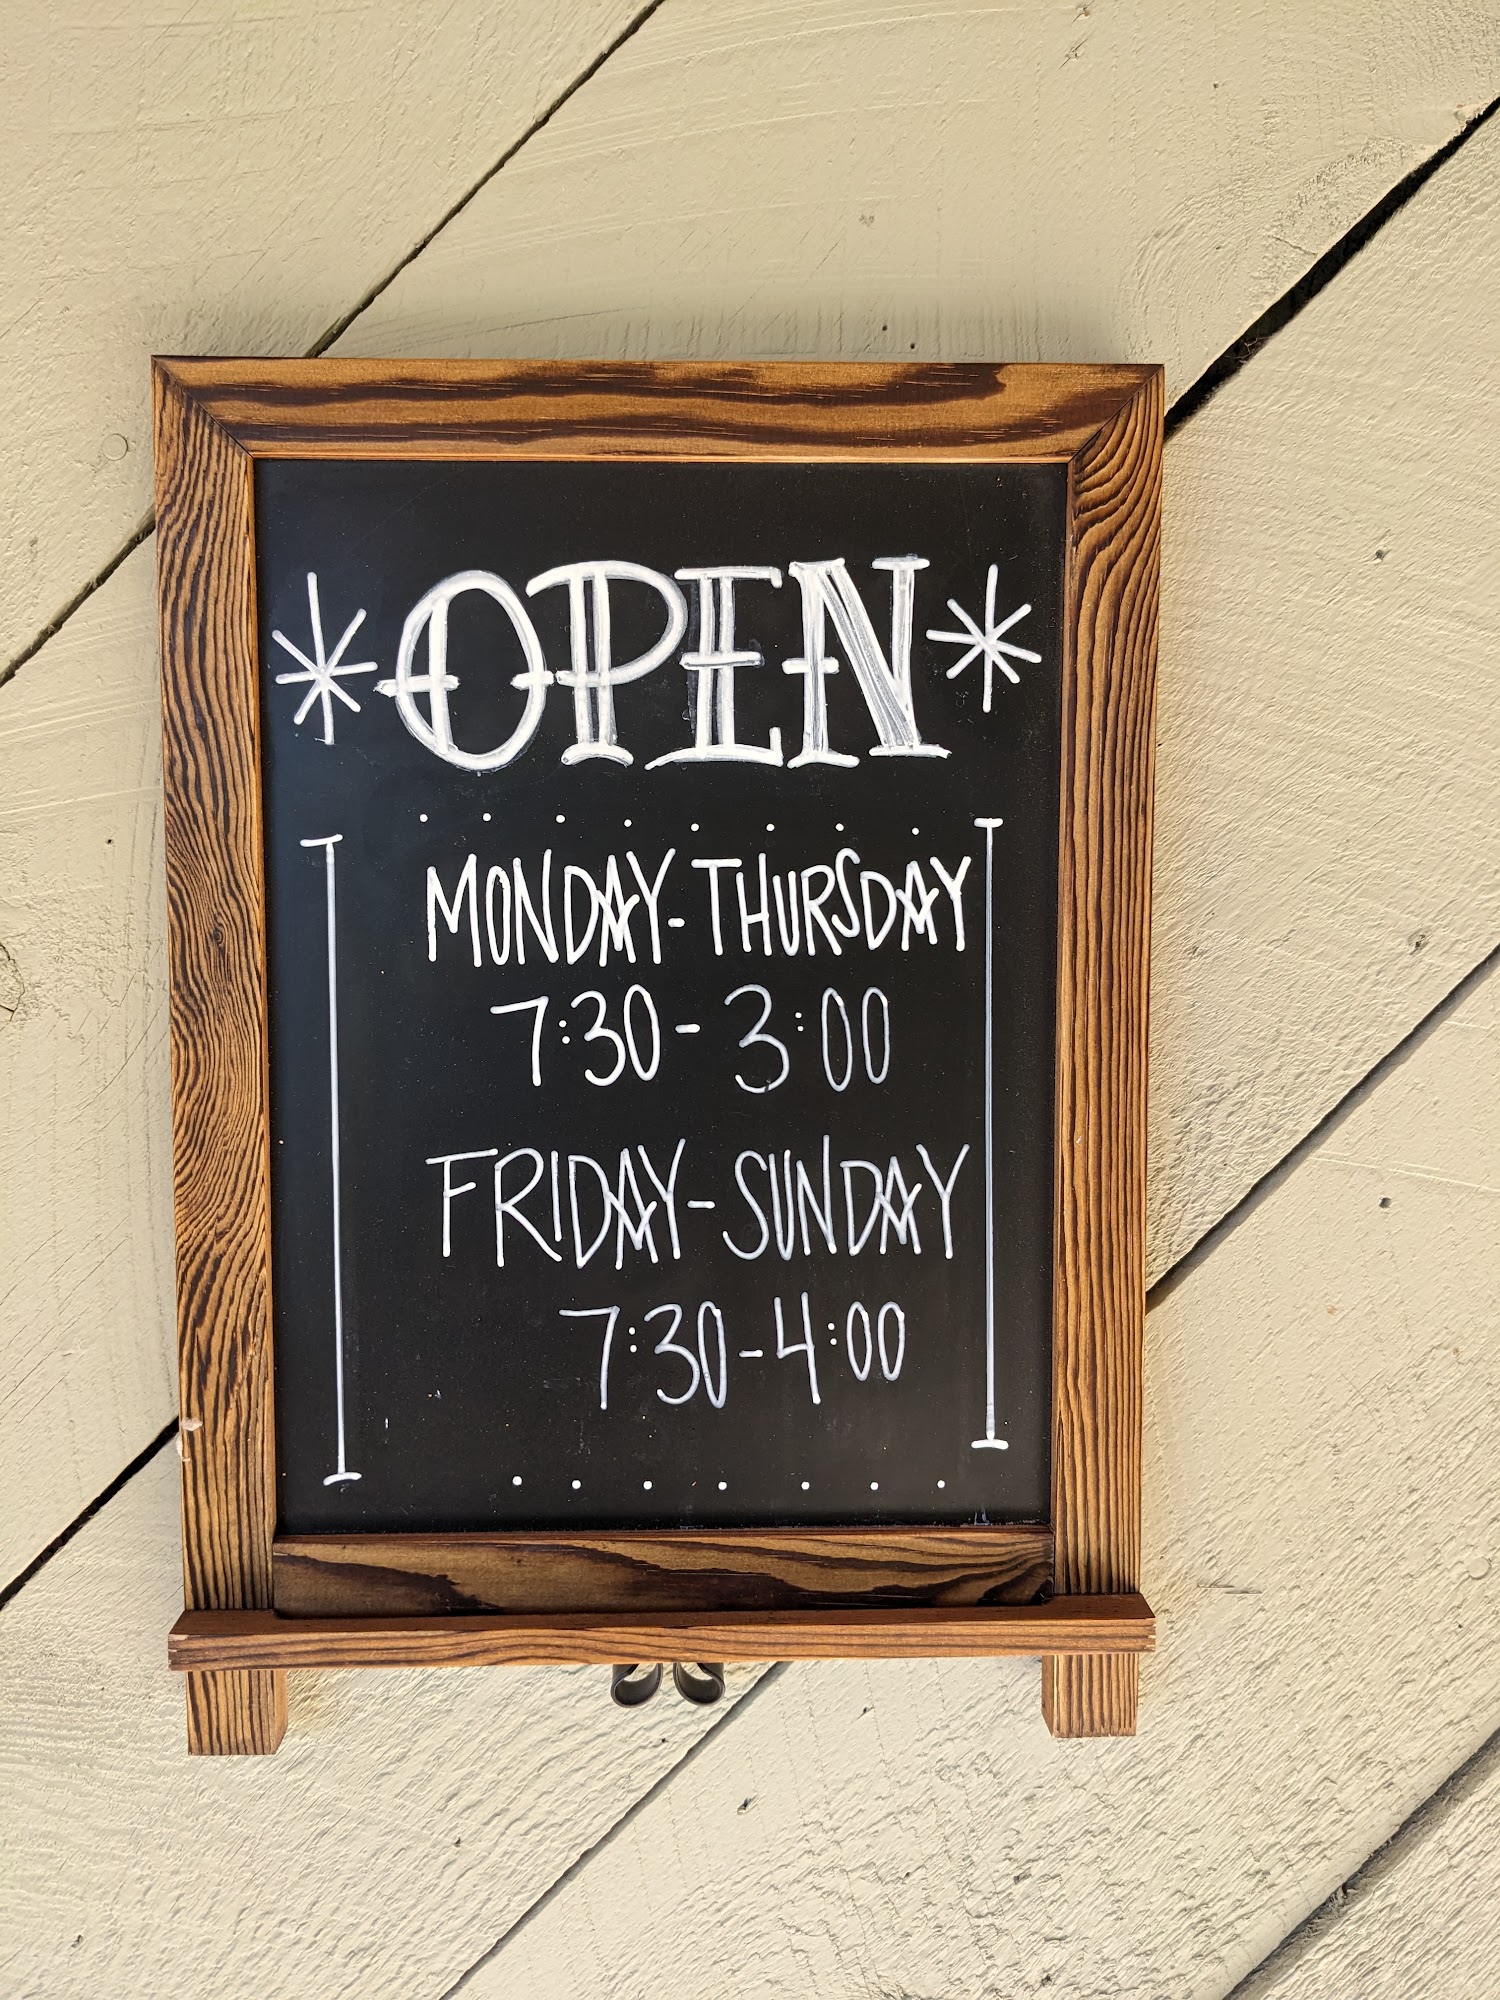 *OPEN*
MONDAY-THURSDAY
7:30-3:00
FRIDAY-SUNDAY
7:30-4:00